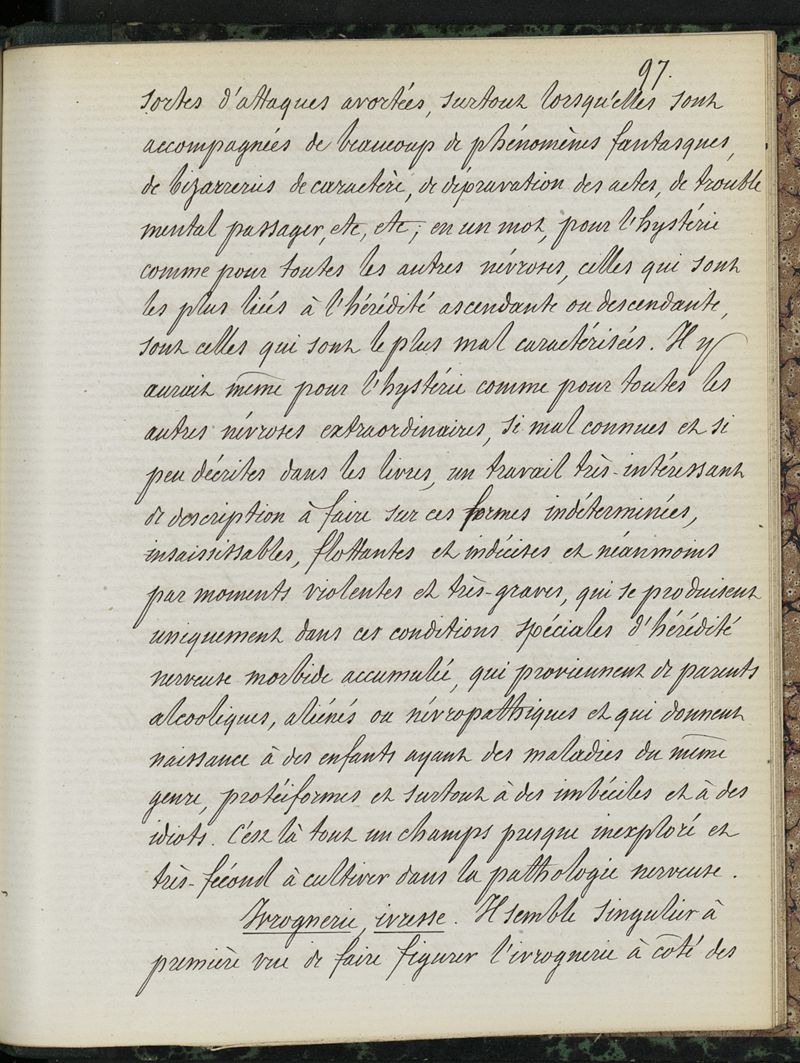 97.
sortes d'attaques avortées, surtout lorsqu'elles sont
accompagnées de beaucoup de phénomènes fantasques,
de bizarreries de caractère, de dépravation des actes, de trouble
mental passager, etc, etc; en un mot, pour l'hystérie
comme pour toutes les autres névroses, celles qui sont
les plus liées à l'hérédité ascendante ou descendante,
sont celles qui sont le plus mal caractérisées. Il y
aurait même pour l'hystérie comme pour toutes les
autres névroses extraordinaires, si mal connues et si
peu décrites dans les livres, un travail très-intéressant
de description à faire sur ces formes indéterminées,
insaisissables, flottantes et indécises et néanmoins
par moments violentes et très-graves, qui se produisent
uniquement dans ces conditions spéciales d'hérédité
nerveuse morbide accumulée, qui proviennent de parents
alcooliques, aliénés ou névropathiques et qui donnent
naissance à des enfants ayant des maladies du même
genre, protéiformes et surtout à des imbéciles et à des
idiots. C'est là tout un champs presque inexploré et
très-fécond à cultiver dans la pathologie nerveuse.
Ivrognerie, ivresse. Il semble singulier à
première vue de faire figurer l'ivrognerie à côté des